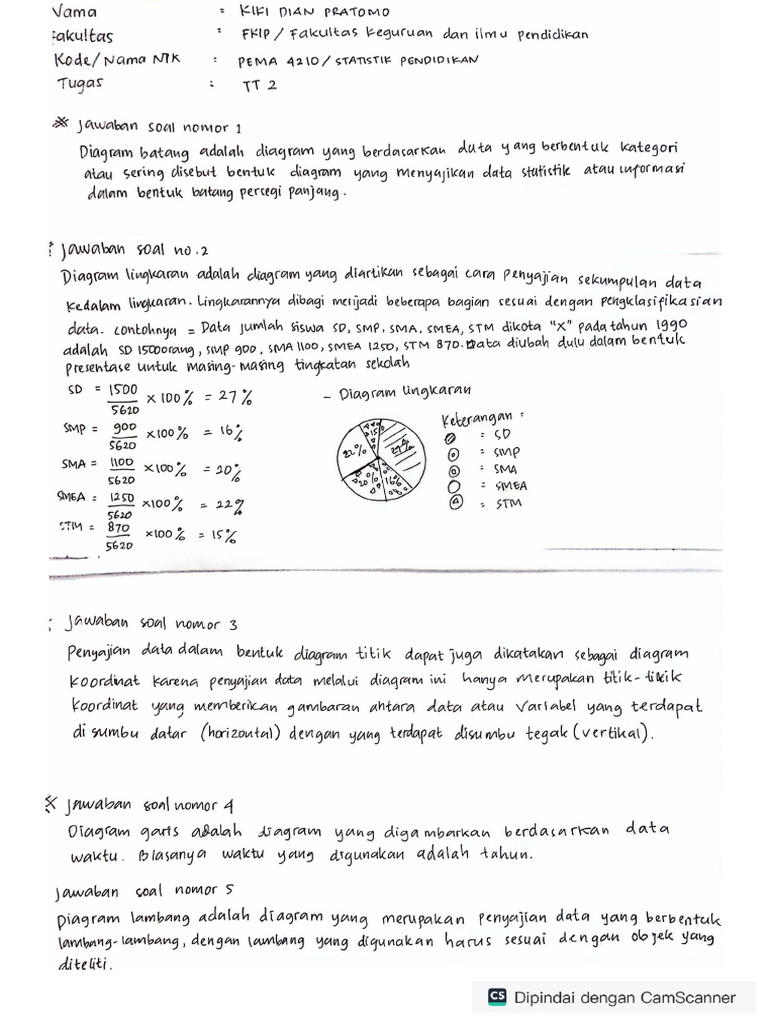 Nama : KIKI DIAN PRATOMO
Fakultas : FKIP / Fakultas keguruan dan ilmu pendidikan
Kode/Nama MK : PEMA 4210 / STATISTIK PENDIDIKAN
Tugas : TT 2
* Jawaban soal nomor 1
Diagram batang adalah diagram yang berdasarkan data yang berbentuk kategori
atau sering disebut bentuk diagram yang menyajikan data statistik atau informasi
dalam bentuk batang percegi panjang.
: Jawaban soal no.2
Diagram lingkaran adalah diagram yang diartikan sebagai cara penyajian sekumpulan data
kedalam lingkaran. Lingkarannya dibagi menjadi beberapa bagian sesuai dengan pengklasifikasian
data. contohnya = Data jumlah siswa SD, SMP, SMA, SMEA, STM dikota "X" pada tahun 1990
adalah SD 1500orang, SMP 900, SMA 1100, SMEA 1250, STM 870. Data diubah dulu dalam bentuk
presentase untuk masing-masing tingkatan sekolah
SD = 1500/5620 × 100% = 27%
SMP = 900/5620 ×100% = 16%
SMA = 1100/5620 ×100% = 20%
SMEA = 1250/5620 ×100% = 22%
STM = 870/5620 ×100% = 15%
- Diagram lingkaran
15%
22%
27%
20%
16%
Keterangan :
: SD
: SMP
: SMA
: SMEA
: STM
: Jawaban soal nomor 3
Penyajian data dalam bentuk diagram titik dapat juga dikatakan sebagai diagram
koordinat karena penyajian data melalui diagram ini hanya merupakan titik-titik
koordinat yang memberikan gambaran antara data atau variabel yang terdapat
di sumbu datar (horizontal) dengan yang terdapat disumbu tegak (vertikal).
* Jawaban soal nomor 4
Diagram garis adalah diagram yang digambarkan berdasarkan data
waktu. Biasanya waktu yang digunakan adalah tahun.
Jawaban soal nomor 5
Diagram lambang adalah diagram yang merupakan penyajian data yang berbentuk
lambang-lambang, dengan lambang yang digunakan harus sesuai dengan objek yang
diteliti.
CS Dipindai dengan CamScanner